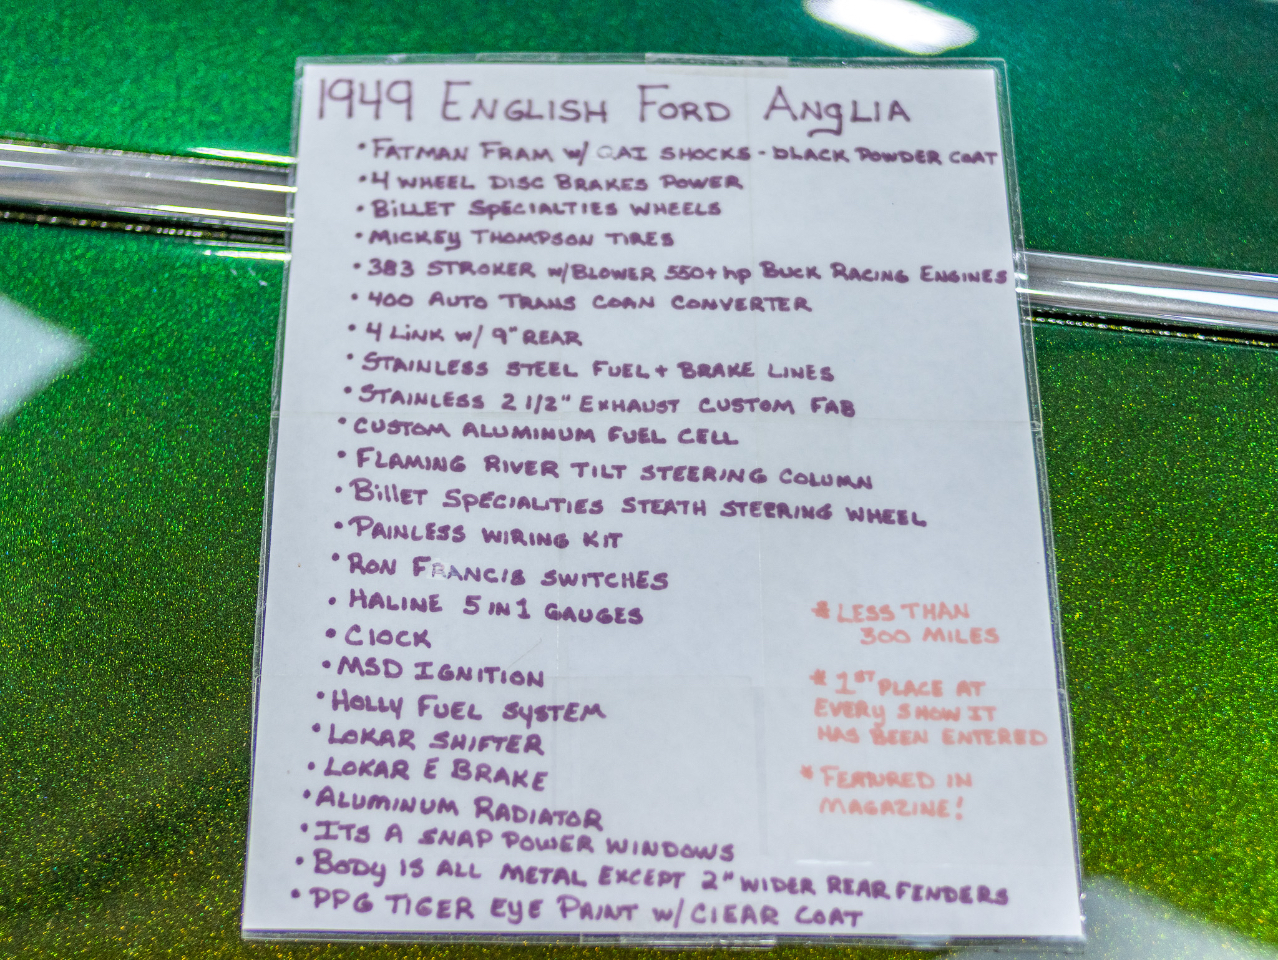 1949 ENGLISH FORD ANGLIA
• FATMAN FRAM W/ QAI SHOCKS - BLACK POWDER COAT
• 4 WHEEL DISC BRAKES POWER
• BILLET SPECIALTIES WHEELS
• MICKEY THOMPSON TIRES
• 383 STROKER W/BLOWER 550+ hp BUCK RACING ENGINES
• 400 AUTO TRANS COAN CONVERTER
• 4 LINK W/ 9" REAR
• STAINLESS STEEL FUEL + BRAKE LINES
• STAINLESS 2 1/2" EXHAUST CUSTOM FAB
• CUSTOM ALUMINUM FUEL CELL
• FLAMING RIVER TILT STEERING COLUMN
• BILLET SPECIALITIES STEATH STEERING WHEEL
• PAINLESS WIRING KIT
• RON FRANCIS SWITCHES
• HALINE 5 IN 1 GAUGES
• CLOCK
• MSD IGNITION
• HOLLY FUEL SYSTEM
• LOKAR SHIFTER
• LOKAR E BRAKE
• ALUMINUM RADIATOR
• ITS A SNAP POWER WINDOWS
• BODY IS ALL METAL EXCEPT 2" WIDER REAR FENDERS
• PPG TIGER EYE PAINT W/ CLEAR COAT
* LESS THAN
300 MILES
* 1ST PLACE AT
EVERY SHOW IT
HAS BEEN ENTERED
* FEATURED IN
MAGAZINE!